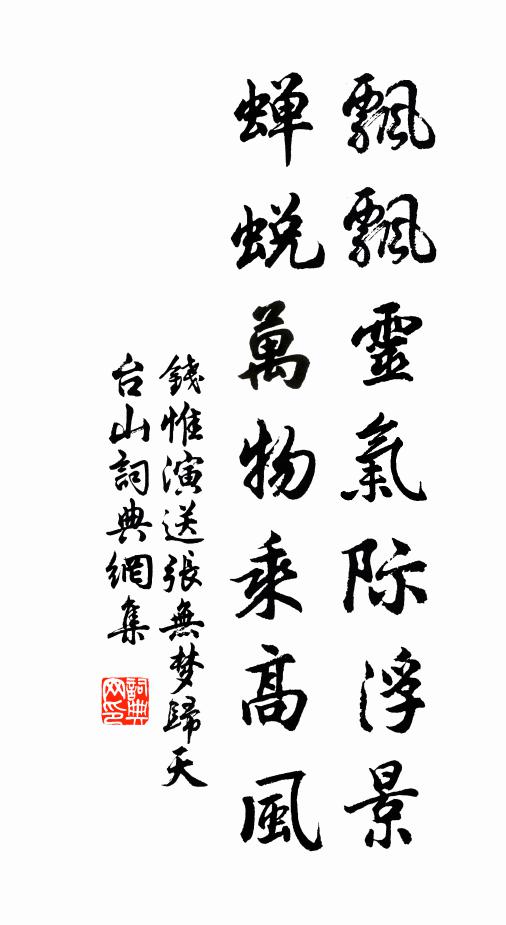 飄飄靈氣际浮景
蝉蜕萬物乘高風
錢惟演送張無梦歸天
台山詞典網集
詞典网印